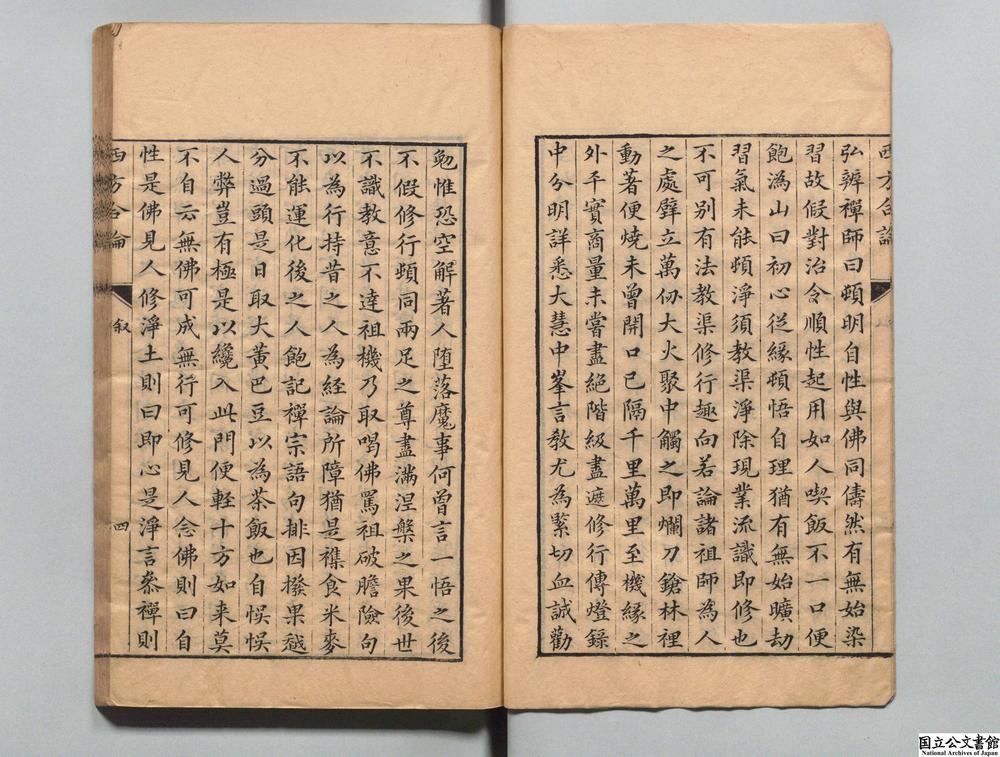 西方合論
弘辨禪師曰頓明自性與佛同儔然有無始染
習故假對治令順性起用如人喫飯不一口便
飽溈山曰初心從緣頓悟自理猶有無始曠劫
習氣未能頓淨須教渠淨除現業流識即修也
不可別有法教渠修行趣向若論諸祖師為人
之處壁立萬仞大火聚中觸之即爛刀鎗林裡
動著便燒未曾開口已隔千里萬里至機緣之
外平實商量未嘗盡絕階級盡遮修行傳燈錄
中分明詳悉大慧中峯言教尤為緊切血誠勸
勉惟恐空解著人墮落魔事何曾言一悟之後
不假修行頓同兩足之尊盡滿涅槃之果後世
不識教意不達祖機乃取喝佛罵祖破膽險句
以為行持昔之人為經論所障猶是襍食米麥
不能運化後之人飽記禪宗語句排因撥果越
分過頭是日取大黃巴豆以為茶飯也自悞悞
人弊豈有極是以纔入此門便輕十方如来莫
不自云無佛可成無行可修見人念佛則曰自
性是佛見人修淨土則曰即心是淨言叅禪則
西方合論
叙
四
国立公文書館
National Archives of Japan